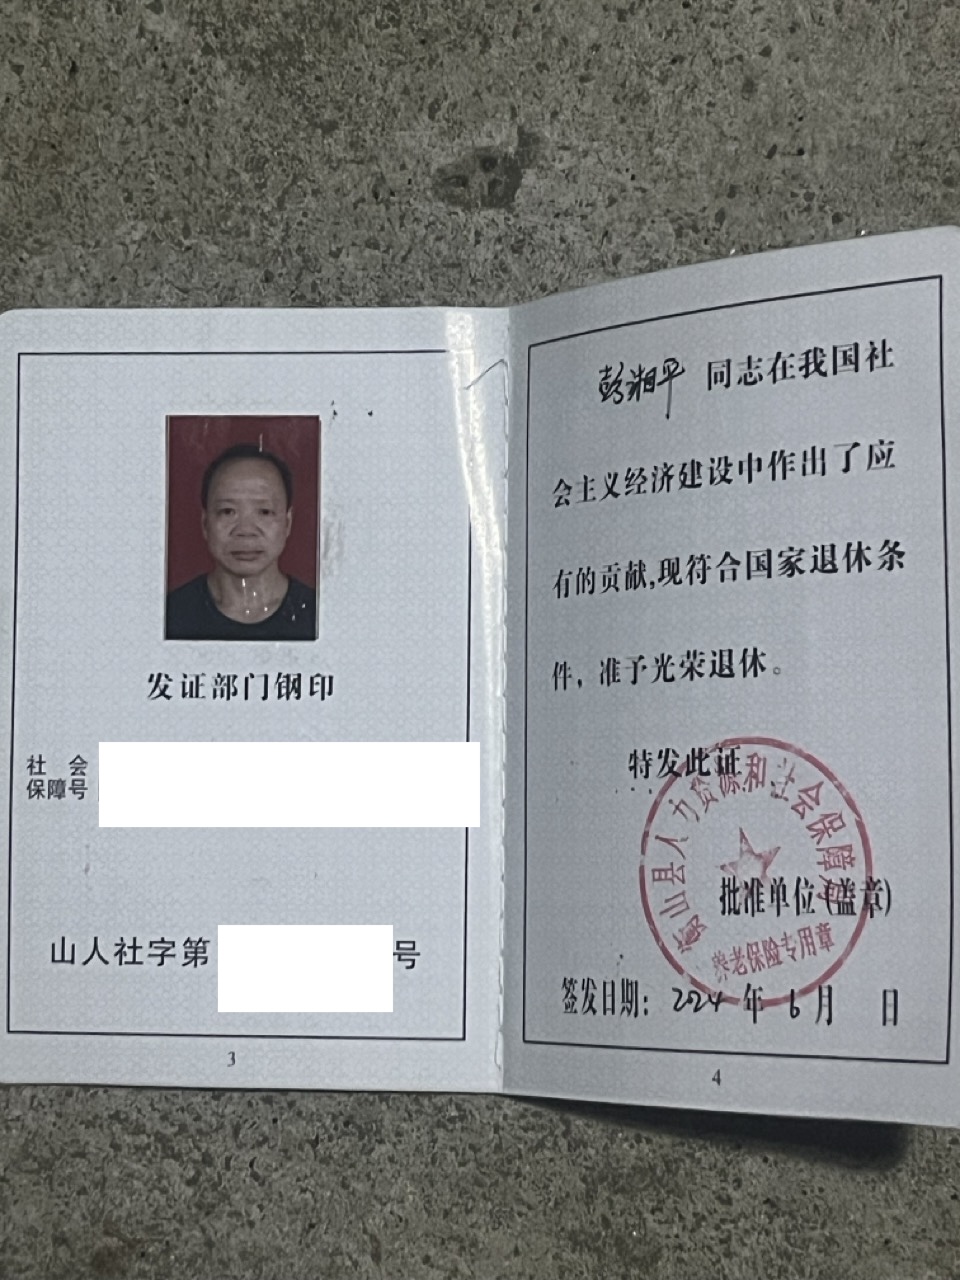 发证部门钢印
社 会
保障号
山人社字第 号
3
彭湘平 同志在我国社
会主义经济建设中作出了应
有的贡献,现符合国家退休条
件，准予光荣退休。
特发此证
衡山县人力资源和社会保障局
养老保险专用章
批准单位(盖章)
签发日期：2024 年 6 月 日
4